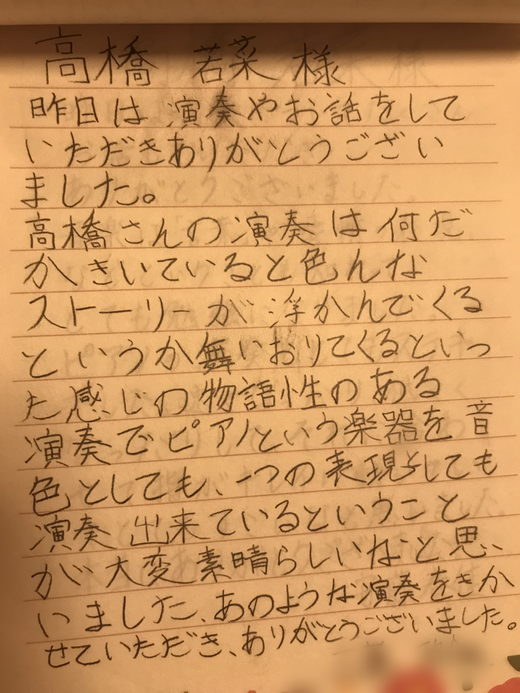 高橋 若菜 様
昨日は演奏やお話をして
いただきありがとうござい
ました。
高橋さんの演奏は何だ
かきいていると色んな
ストーリーが浮かんでくる
というか舞いおりてくるといっ
た感じの物語性のある
演奏でピアノという楽器を音
色としても、一つの表現としても
演奏出来ているということ
が大変素晴らしいなと思
いました、あのような演奏をきか
せていただき、ありがとうございました。